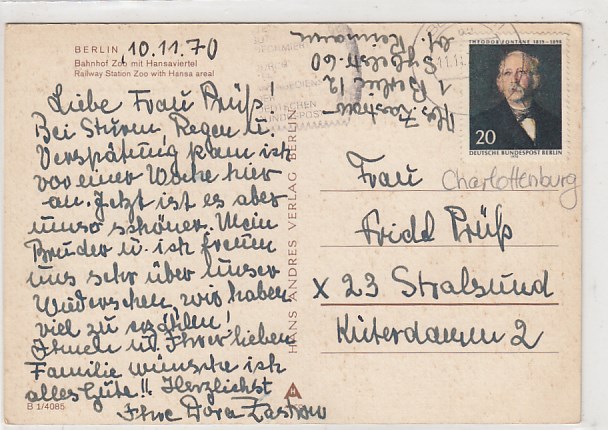 BERLIN
10.11.70
Bahnhof Zoo mit Hansaviertel
Railway Station Zoo with Hansa areal
Liebe Frau Prüß!
Bei Sturm, Regen u.
Verspätung kam ich
vor einer Woche hier
an. Jetzt ist es aber
umso schöner. Mein
Bruder u. ich freuen
uns sehr über unser
Wiedersehen, wir haben
viel zu erzählen!
Ihnen u. Ihrer lieben
Familie wünsche ich
alles Gute!! Herzlichst
Ihre Dora Zastrow
B 1/4085
HANS ANDRES VERLAG BERLIN
Abs. Zastrow
1 Berlin 12
Sybelstr. 60
Reimann
THEODOR FONTANE 1819-1898
20
DEUTSCHE BUNDESPOST BERLIN
Frau
Charlottenburg
Prüß
x 23 Stralsund
Küterdamm 2